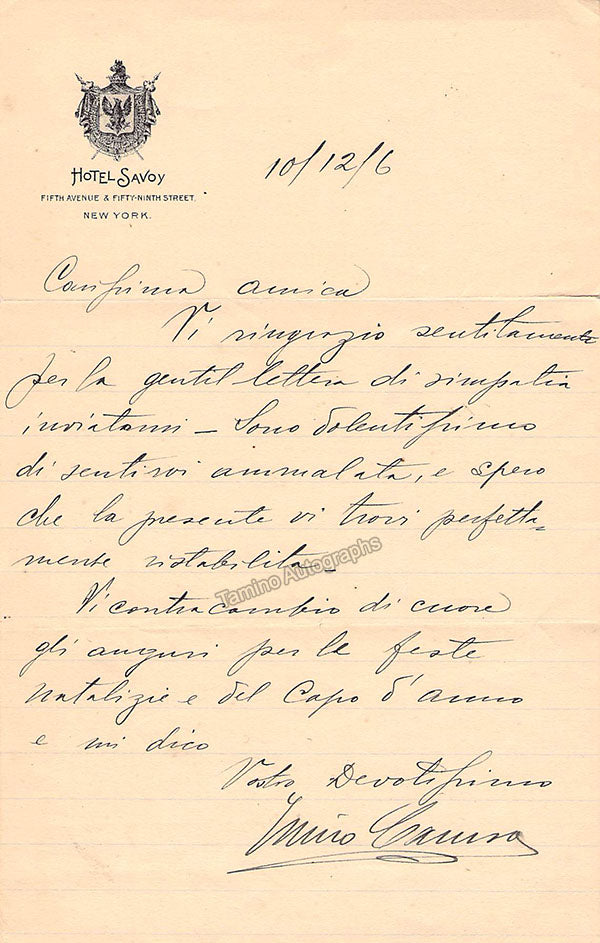 HOTEL SAVOY
FIFTH AVENUE & FIFTY-NINTH STREET,
NEW YORK.
10/12/6
Carissima amica
Vi ringrazio sentitamente
per la gentil lettera di simpatia
inviatami – Sono dolentissimo
di sentirvi ammalata, e spero
che la presente vi trovi perfetta=
mente ristabilita –
Tamino Autographs
Vi contracambio di cuore
gli auguri per le feste
natalizie e del Capo d'anno
e mi dico
Vostro Devotissimo
Enrico Caruso